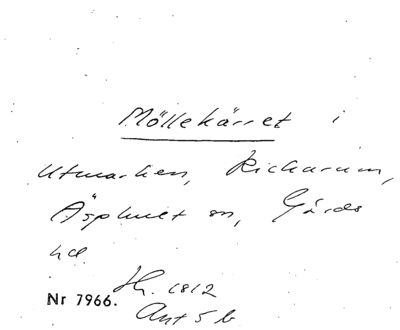 Möllekärret i
Utmarken, Rickarum,
Äsphult sn, Gärds
hd.
Nr 7966. Jfr. 1812
Akt 5 b